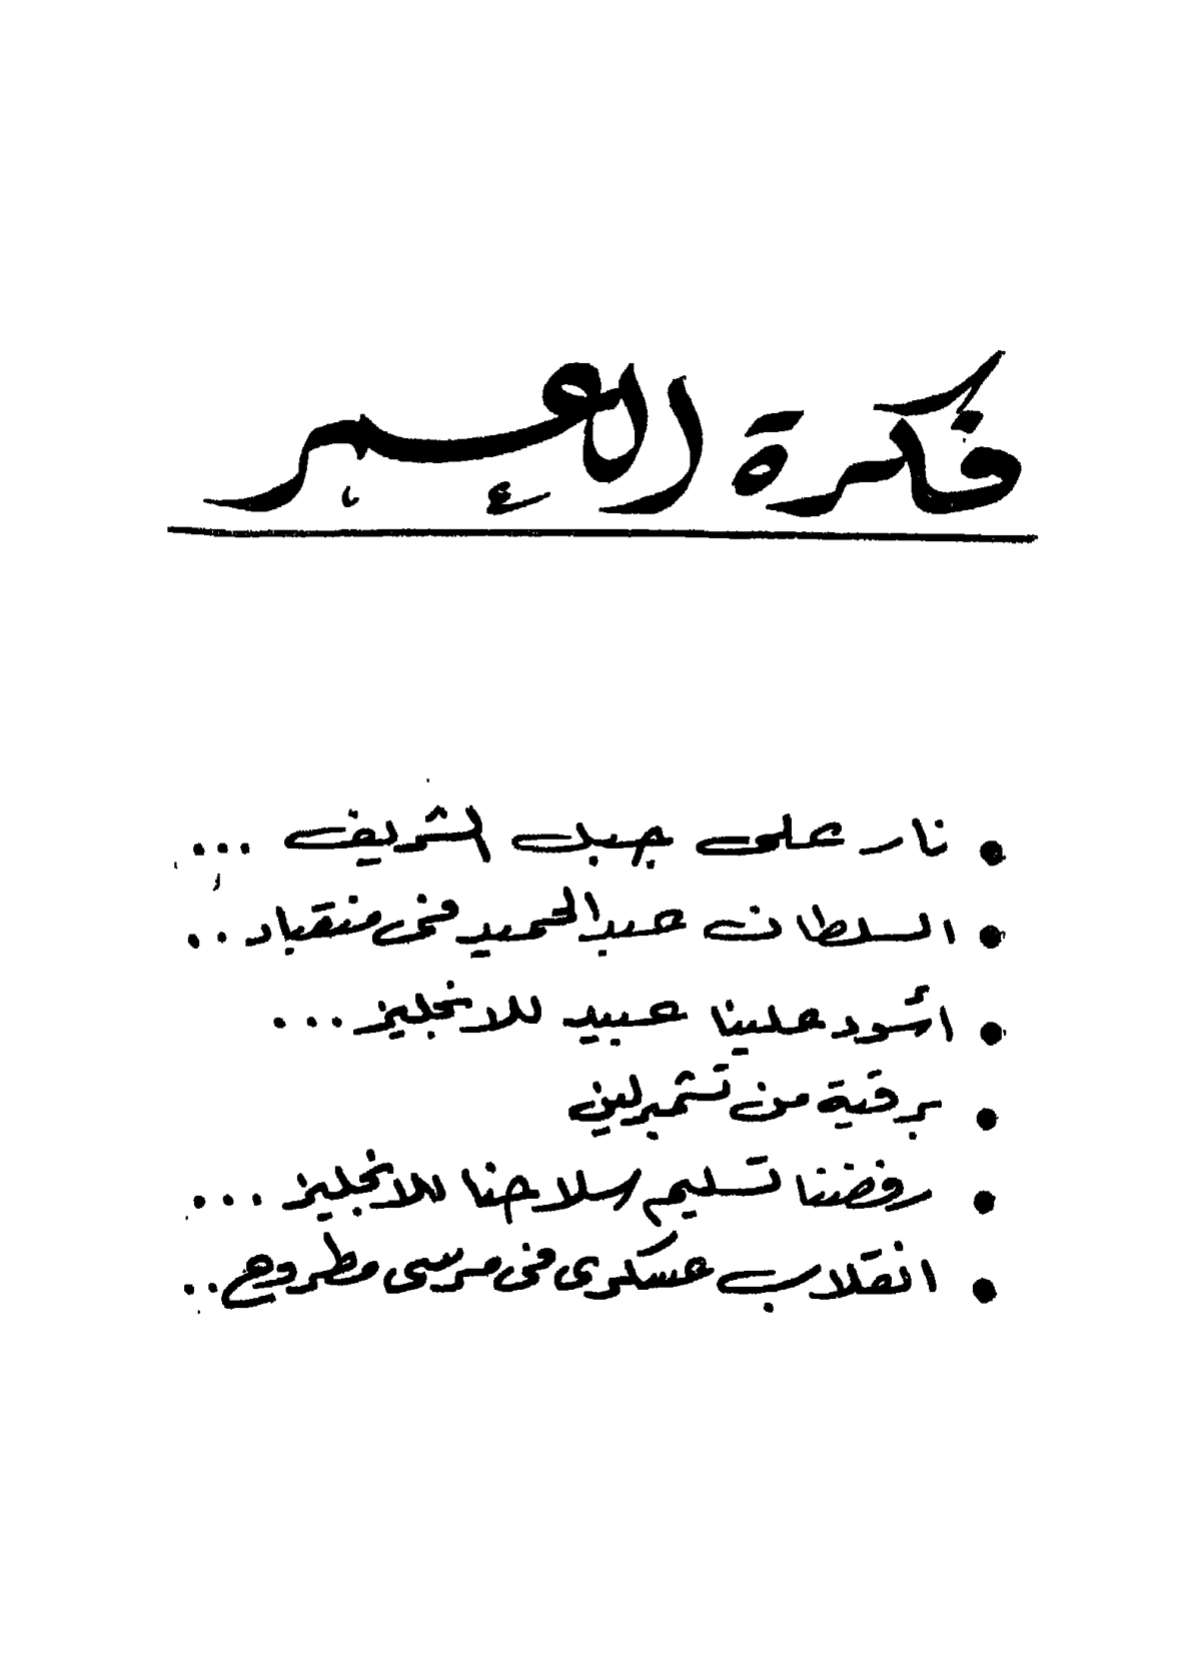 فكرة العمر
• نار على جبل الشريف ...
• السلطان عبد الحميد فى منقباد ..
• أسود علينا عبيد للانجليز ...
• برقية من تشمبرلين
• رفضنا تسليم سلاحنا للانجليز ...
• انقلاب عسكرى فى مرسى مطروح ..